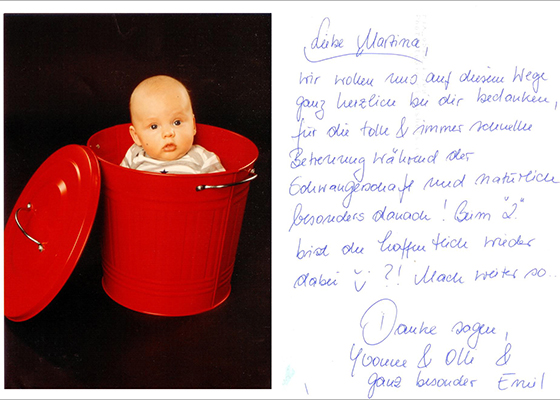 Liebe Martina,
wir wollen uns auf diesem Wege
ganz herzlich bei dir bedanken,
für die tolle & immer schnelle
Betreuung während der
Schwangerschaft und natürlich
besonders danach! Beim "2."
bist du hoffentlich wieder
dabei ?! Mach weiter so..
Danke sagen,
Yvonne & Olli &
ganz besonder Emil